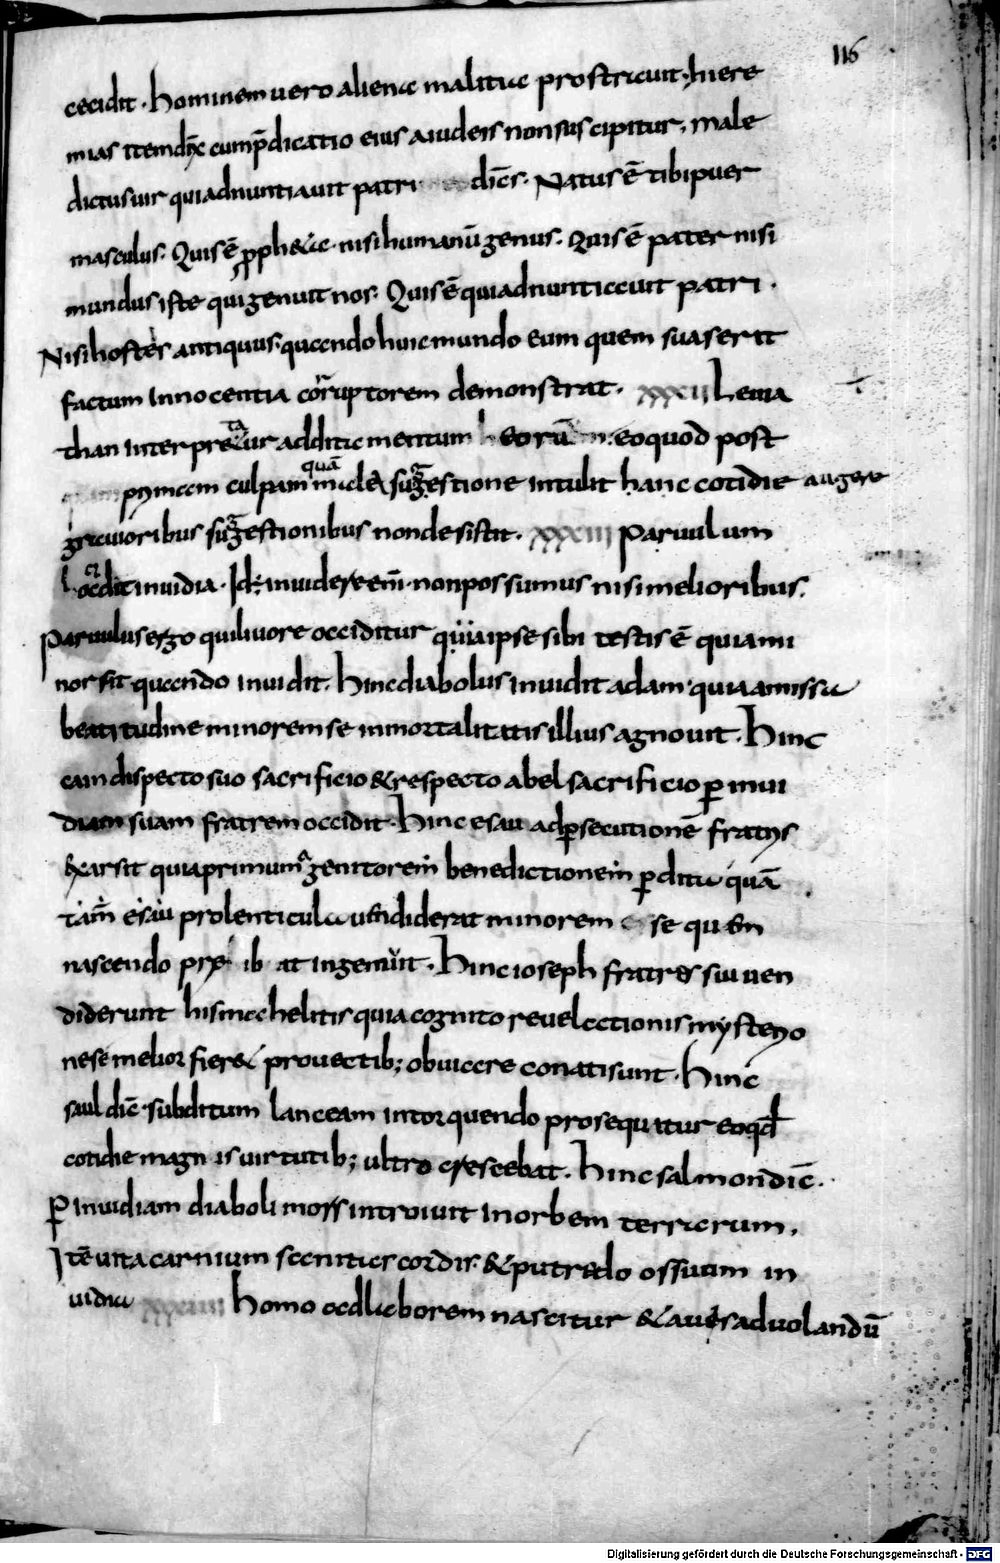 116
cecidit. Hominem uero alienae malitiae prostrauit. hiere
mias item dix̄ cum p̄dicatio eius a iudeis non suscipitur. male
dictus uir qui adnuntiauit patri dic̄s. Natus ē tibi puer
masculus. Quis ē prophetae nisi humanū genus. Quis ē pater nisi
mundus iste qui genuit nos. Quis ē qui adnuntiauit patri.
Nisi hostis antiquus. quando huic mundo eum quem suaserit
factum innocentia corruptorem demonstrat. xxxii Leuia
than interpretatur additamentum eorū eo quod post
primam culpam quā male suggestione intulit hanc cotidie augere
grauioribus suggestionibus non desistit. xxxiii Paruulum
occidit inuidia. Id ÷ inuidere enī non possumus nisi melioribus.
Paruulus ergo qui liuore occiditur quia ipse sibi testis ē quia mi
nor sit quando inuidit. hinc diabolus inuidit adam quia amissa
beatitudine minorem se inmortalitatis illius agnouit. Hinc
cain dispecto suo sacrificio & respecto abel sacrificio p̱ inui
diam suam fratrem occidit. Hinc esau ad p̱secutionē fratris
exarsit quia primum genitorem benedictionem p̱dita quā
tam̄ esau pro lenticula uendiderat minorem se quem
nascendo pre ib at ingemuit. Hinc ioseph fratres sui uen
diderunt hismahelitis quia cognito reuelationis mysterio
ne se melior fieret prouectib; obuiare conati sunt. Hinc
saul dic̄ subditum lanceam intorquendo prosequatur eo qd̄
cotidie magnis uirtutib; ultro crescebat. Hinc salmon dic̄.
P̱ inuidiam diaboli mors introiuit in orbem terrarum.
Itē uita carnium sanitas cordis. & putredo ossuum in
uidia xxxiiii Homo ad laborem nascitur & aues ad uolandū
Digitalisierung gefördert durch die Deutsche Forschungsgemeinschaft - DFG